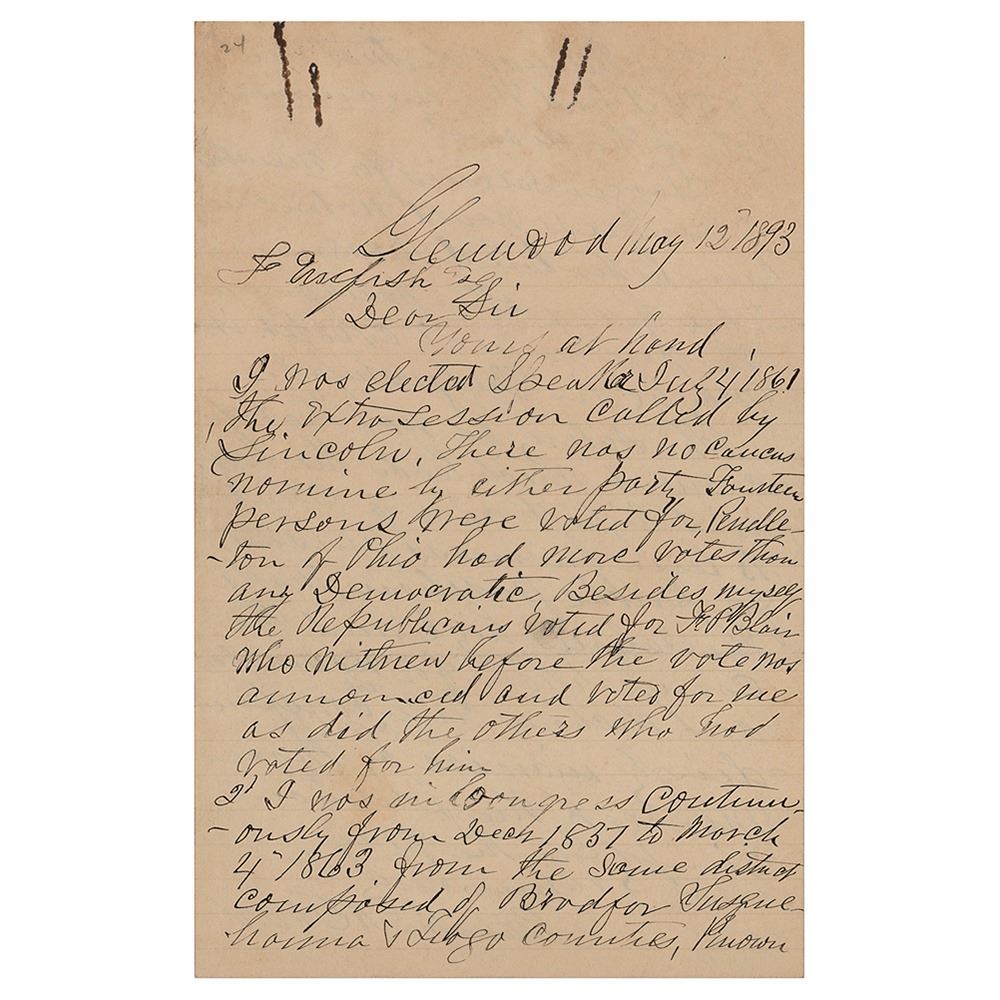 24
Glenwood May 12" 1893
F Enefish Esq
Dear Sir
Yours at hand
I was elected Speaker July 4, 1861
The Extra session called by
Lincoln, There was no caucus
nomine by either party Fourteen
persons were voted for, Pendle-
-ton of Ohio had more votes than
any Democratic, Besides myself
the Republicans voted for F P Blair
who withdrew before the vote was
announced and voted for me
as did the others who had
voted for him
2d I was in Congress continu-
-ously from Decr 1851 to March
4" 1863 from the same district
composed of Bradfor Susque-
hanna & Tioga counties, Known